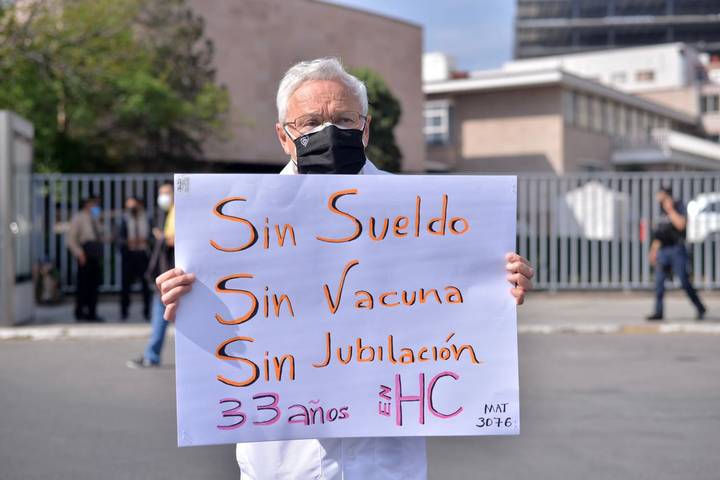 Sin Sueldo
Sin Vacuna
Sin Jubilación
33 años EN HC
MAT
3076